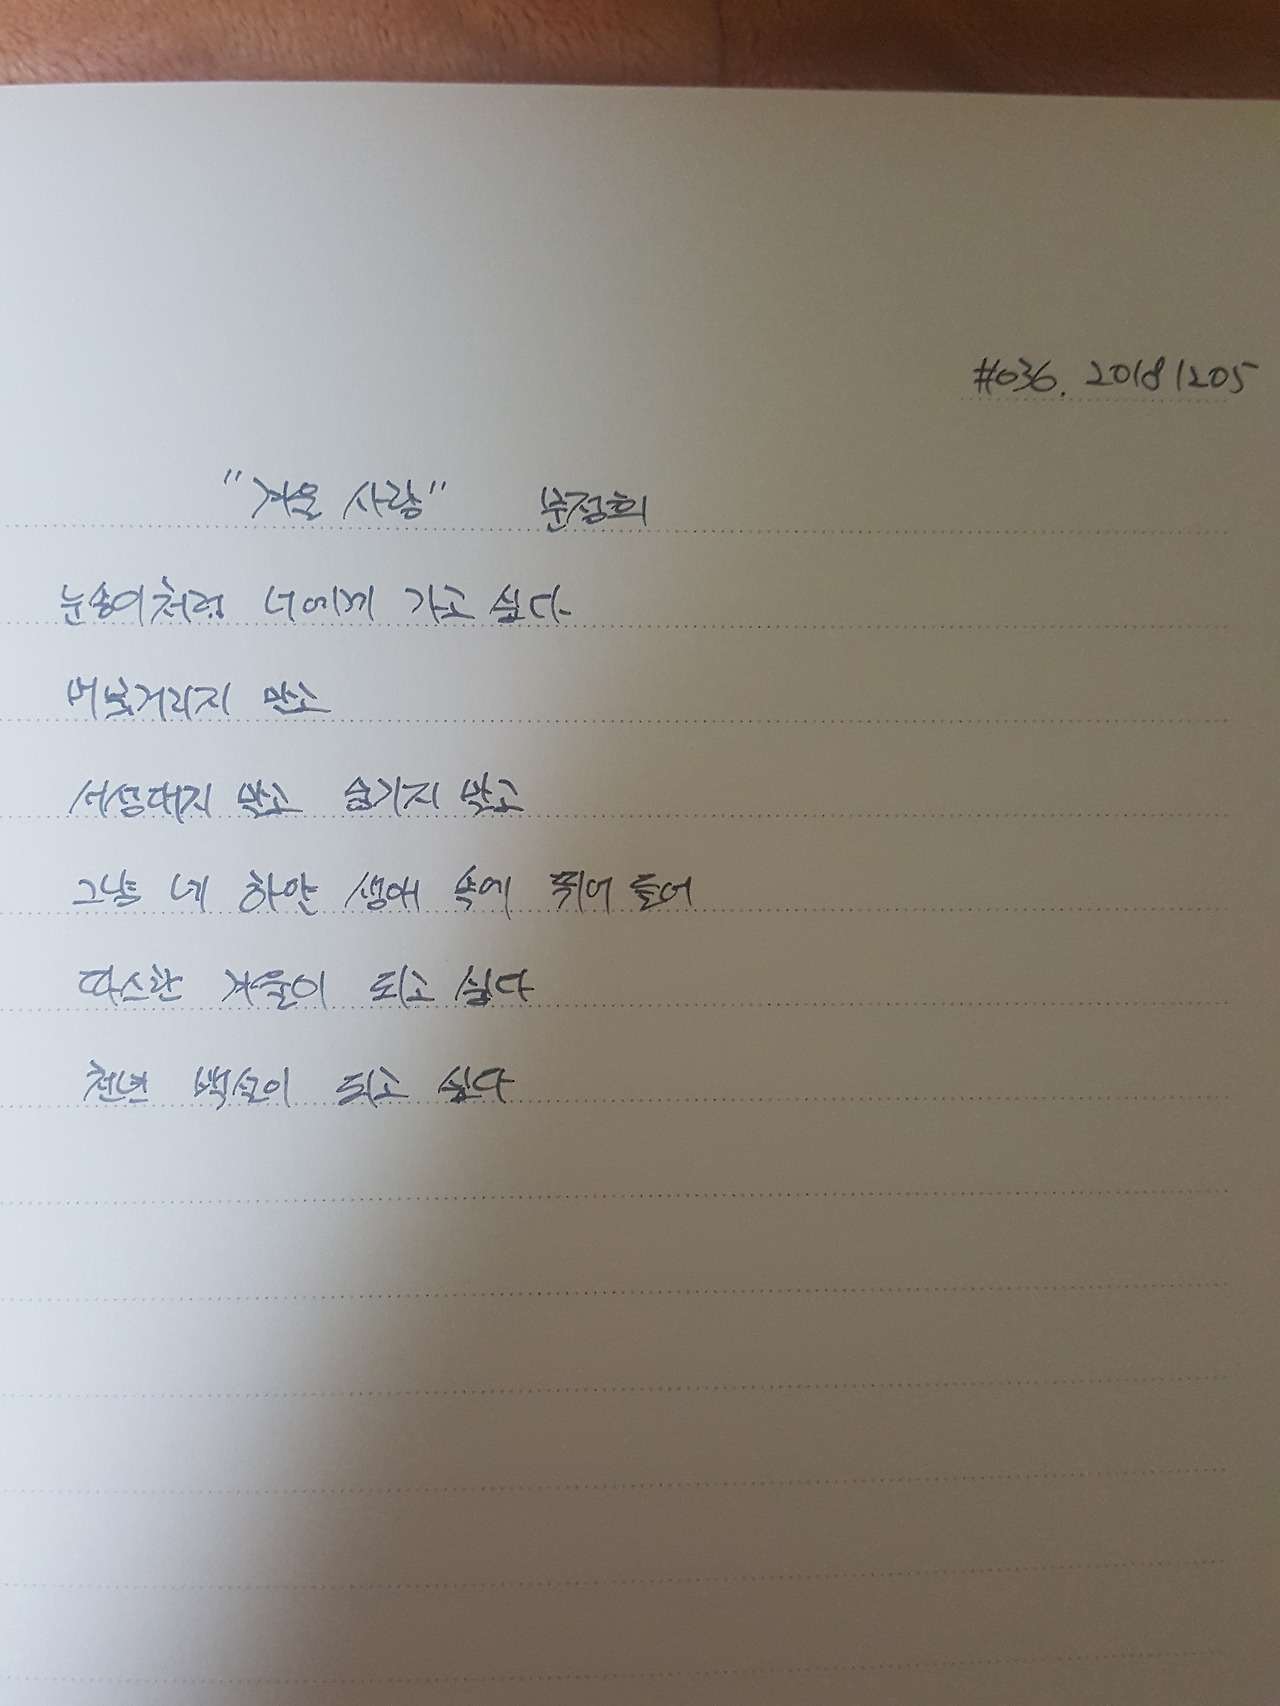 #036. 20181205
"겨울 사랑" 문정희
눈송이처럼 너에게 가고 싶다
머뭇거리지 말고
서성대지 말고 숨기지 말고
그냥 네 하얀 생애 속에 뛰어 들어
따스한 겨울이 되고 싶다
천년 백설이 되고 싶다